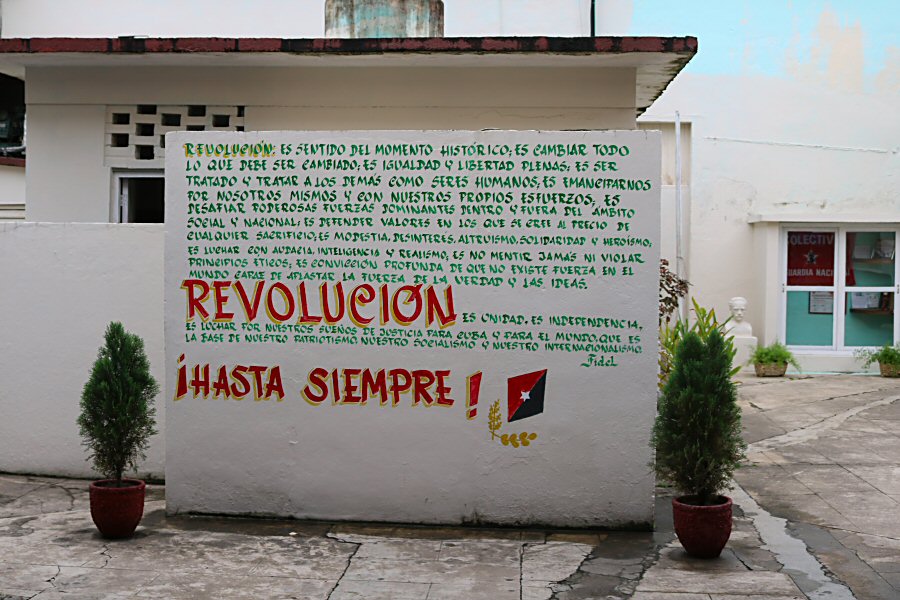 REVOLUCIÓN: ES SENTIDO DEL MOMENTO HISTÓRICO; ES CAMBIAR TODO
LO QUE DEBE SER CAMBIADO; ES IGUALDAD Y LIBERTAD PLENAS; ES SER
TRATADO Y TRATAR A LOS DEMÁS COMO SERES HUMANOS; ES EMANCIPARNOS
POR NOSOTROS MISMOS Y CON NUESTROS PROPIOS ESFUERZOS; ES
DESAFIAR PODEROSAS FUERZAS DOMINANTES DENTRO Y FUERA DEL ÁMBITO
SOCIAL Y NACIONAL; ES DEFENDER VALORES EN LOS QUE SE CREE AL PRECIO DE
CUALQUIER SACRIFICIO; ES MODESTIA, DESINTERES, ALTRUISMO, SOLIDARIDAD Y HEROÍSMO;
ES LUCHAR CON AUDACIA, INTELIGENCIA Y REALISMO; ES NO MENTIR JAMÁS NI VIOLAR
PRINCIPIOS ÉTICOS; ES CONVICCIÓN PROFUNDA DE QUE NO EXISTE FUERZA EN EL
MUNDO CAPAZ DE APLASTAR LA FUERZA DE LA VERDAD Y LAS IDEAS.
REVOLUCIÓN ES UNIDAD, ES INDEPENDENCIA,
ES LUCHAR POR NUESTROS SUEÑOS DE JUSTICIA PARA CUBA Y PARA EL MUNDO, QUE ES
LA BASE DE NUESTRO PATRIOTISMO, NUESTRO SOCIALISMO Y NUESTRO INTERNACIONALISMO.
Fidel
¡HASTA SIEMPRE!
COLECTIV
GUARDIA NACI